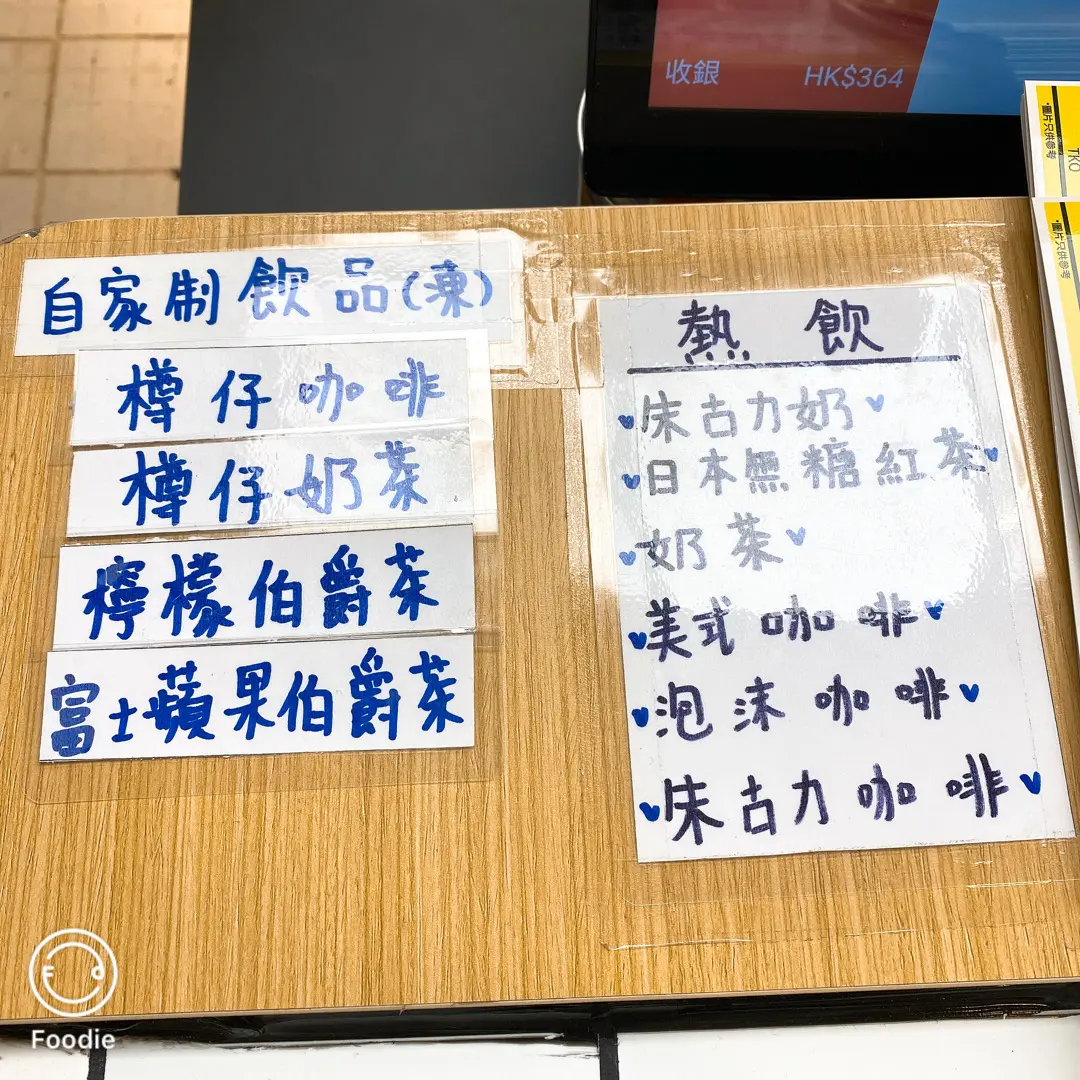 收銀 HK$364
自家制飲品(凍)
樽仔咖啡
樽仔奶茶
檸檬伯爵茶
富士蘋果伯爵茶
熱飲
朱古力奶
日本無糖紅茶
奶茶
美式咖啡
泡沫咖啡
朱古力咖啡
*圖片只供參考
TKO
*圖片只供參考
Foodie